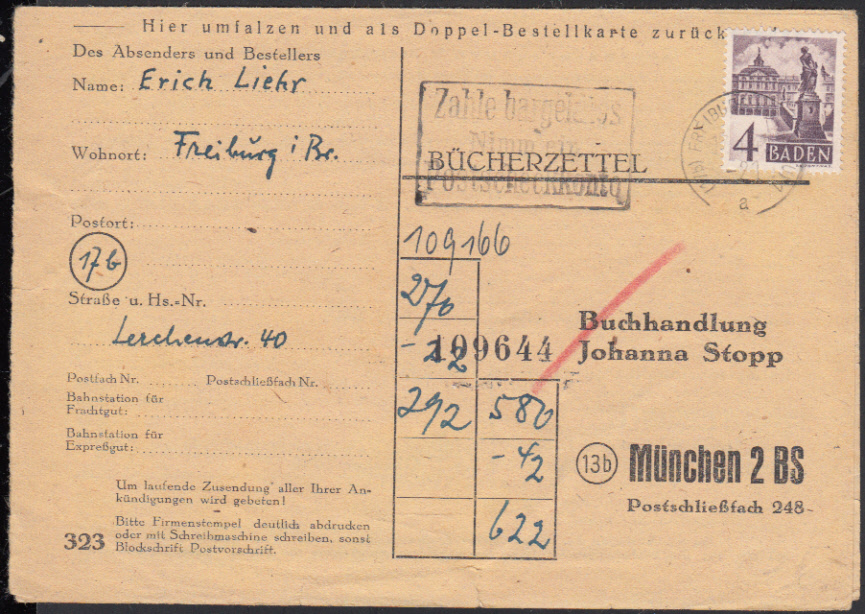 Hier umfalzen und als Doppel-Bestellkarte zurück
Des Absenders und Bestellers
Name: Erich Liehr
Wohnort: Freiburg i Br.
Postort:
17b
Straße u. Hs.-Nr.
Lerchenstr. 40
Postfach Nr. Postschließfach Nr.
Bahnstation für
Frachtgut:
Bahnstation für
Expreßgut:
Um laufende Zusendung aller Ihrer An-
kündigungen wird gebeten!
323
Bitte Firmenstempel deutlich abdrucken
oder mit Schreibmaschine schreiben, sonst
Blockschrift Postvorschrift.
Zahle bargeldlos
Nimm ein
Postscheckkonto
BÜCHERZETTEL
4 BADEN
a
109166
270
- 22
292
580
- 42
622
109644
Buchhandlung
Johanna Stopp
13b München 2 BS
Postschließfach 248